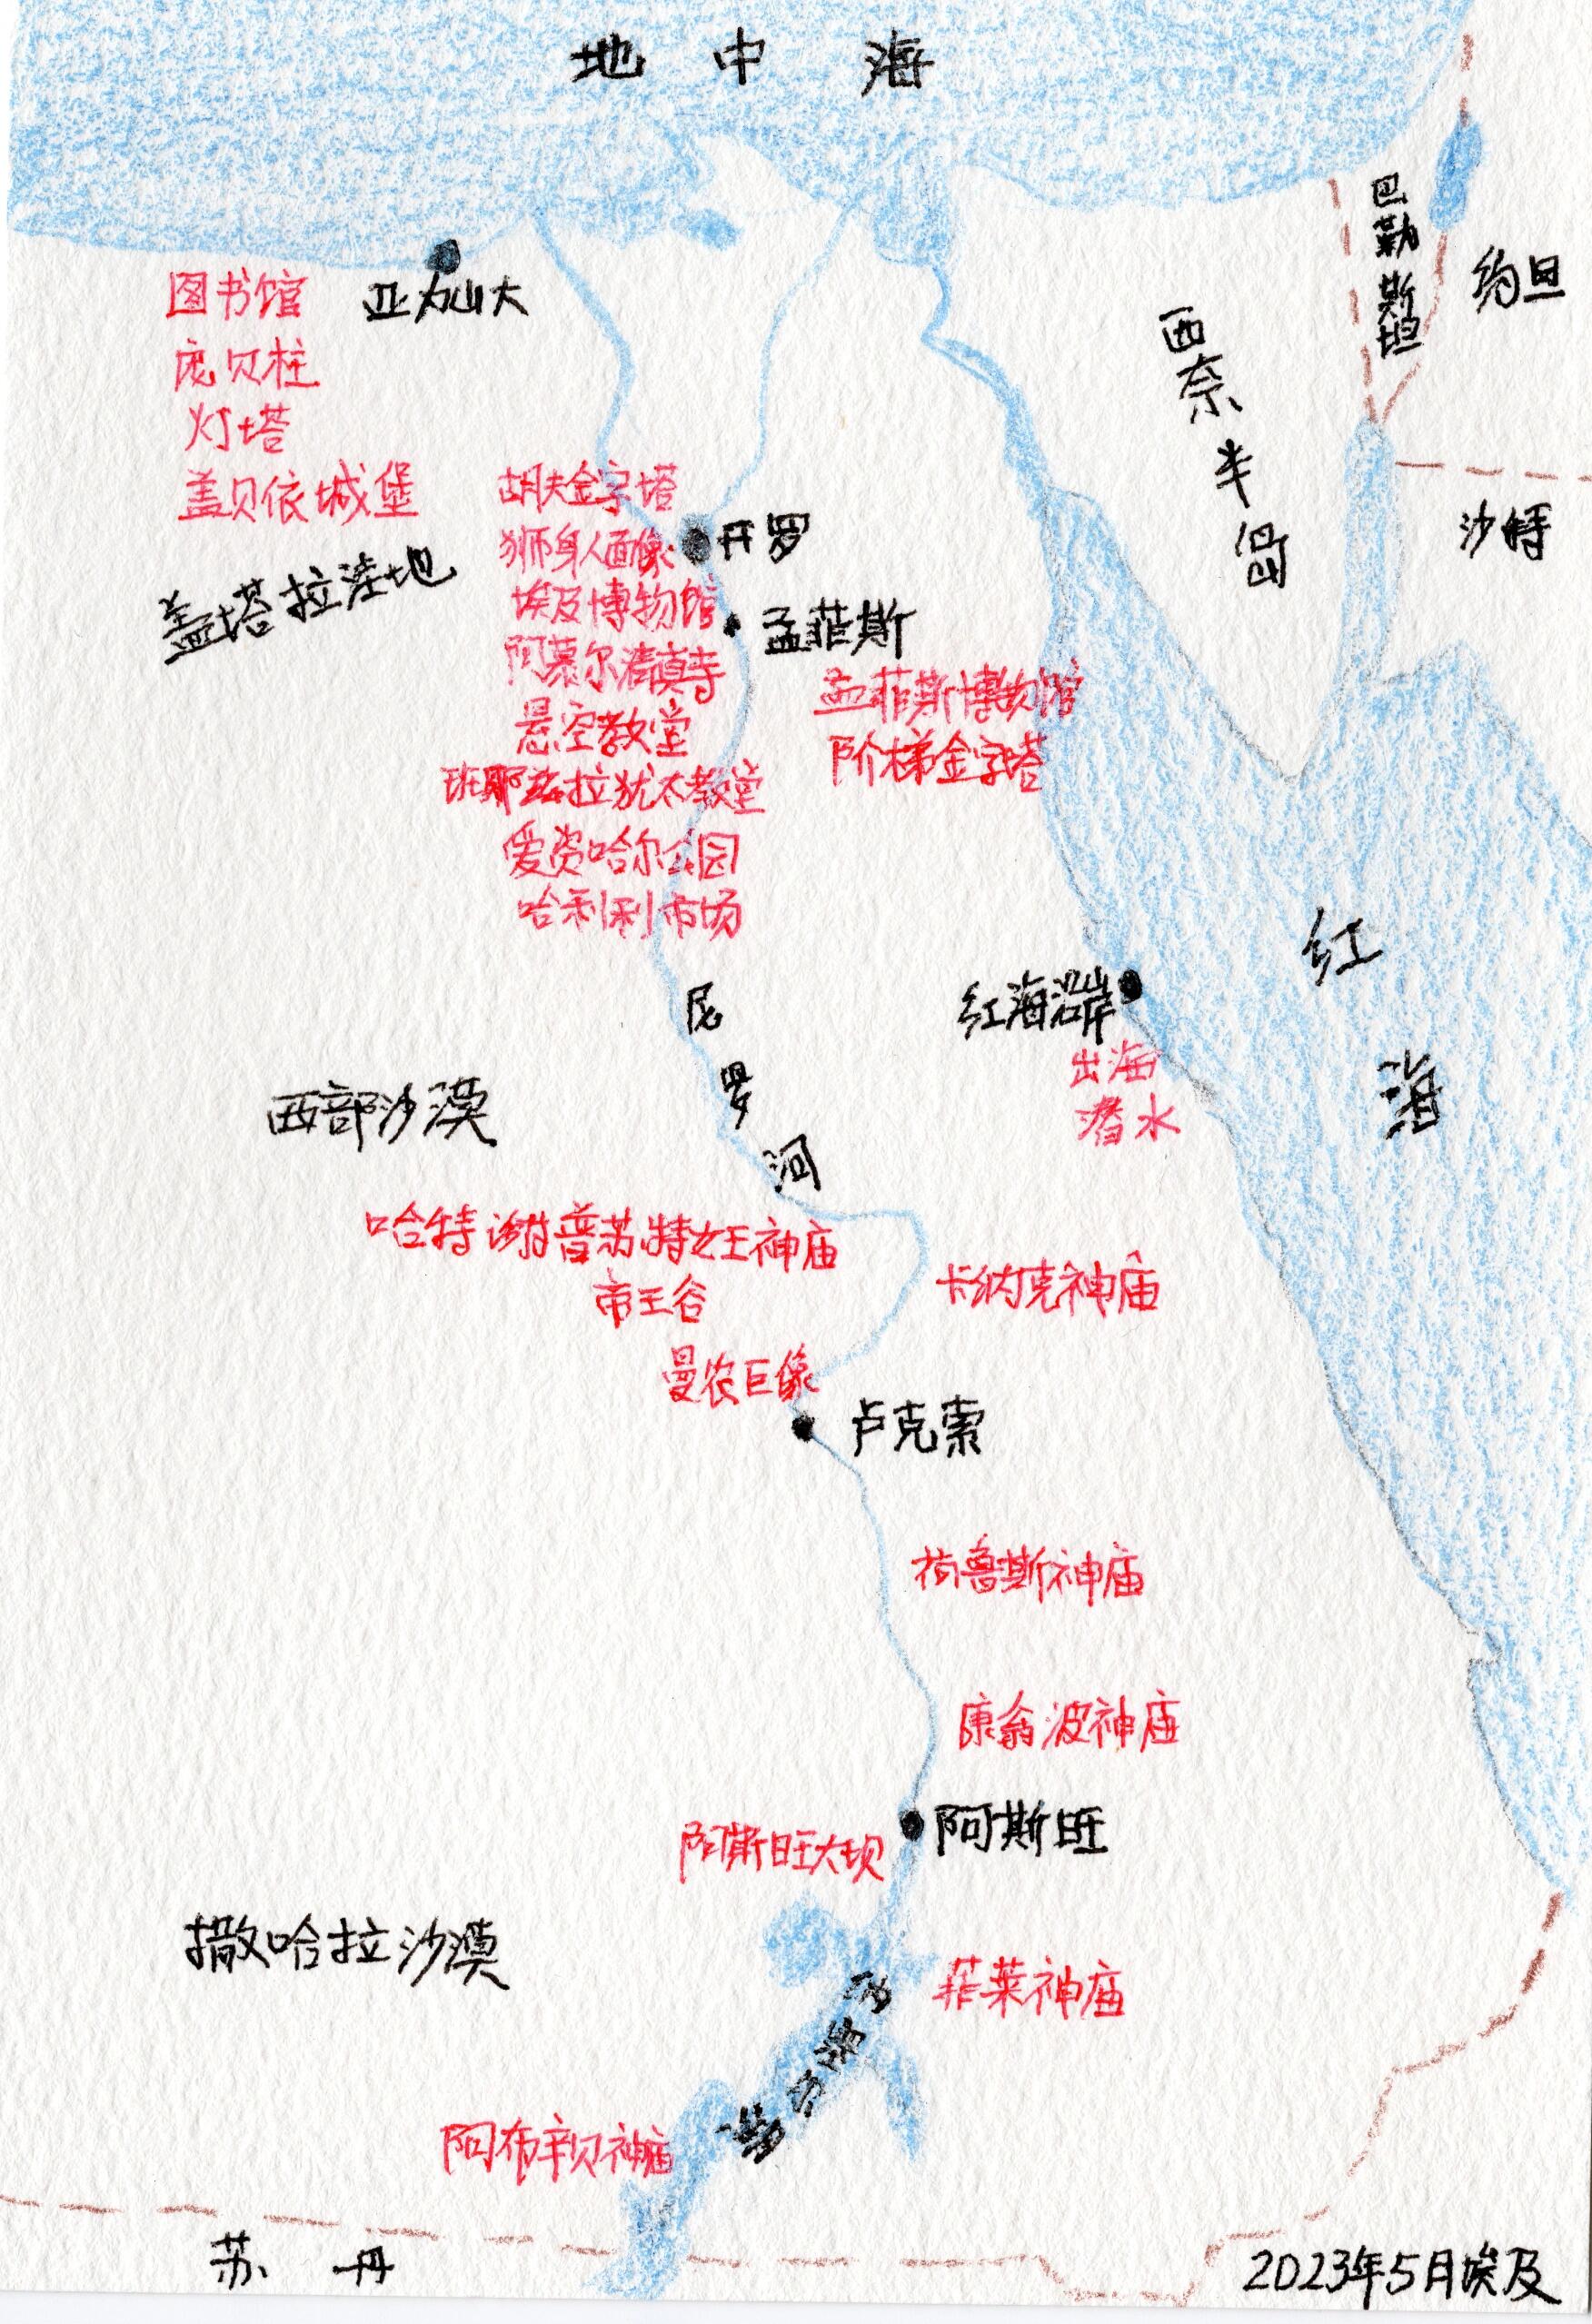 地中海
巴勒斯坦
约旦
图书馆
亚力山大
庞贝柱
灯塔
盖贝依城堡
西奈半岛
沙特
胡夫金字塔
狮身人面像
开罗
盖塔拉洼地
埃及博物馆
孟菲斯
阿慕尔清真寺
孟菲斯博物馆
悬空教堂
阶梯金字塔
班耶兹拉犹太教堂
爱资哈尔公园
哈利利市场
红海
尼罗河
红海沿岸
出海
潜水
西部沙漠
哈特谢普苏特女王神庙
帝王谷
卡纳克神庙
曼农巨像
卢克索
荷鲁斯神庙
康翁波神庙
阿斯旺
阿斯旺大坝
撒哈拉沙漠
菲莱神庙
阿布辛贝神庙
苏丹
2023年5月埃及